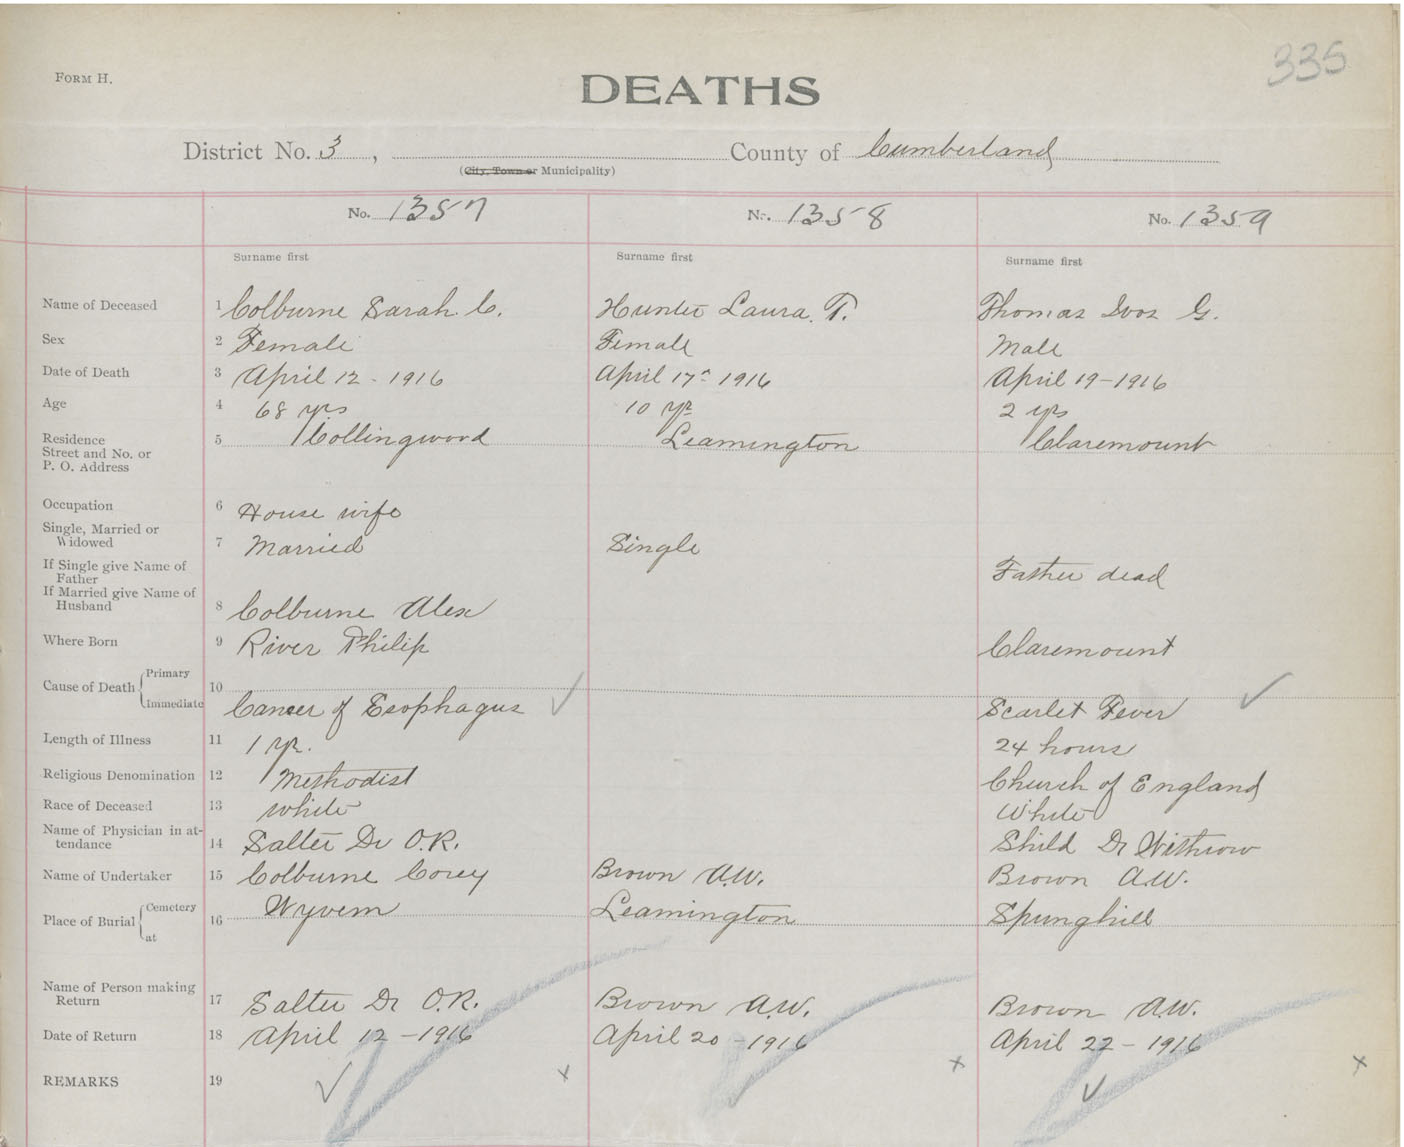 335
FORM H.
DEATHS
District No. 3, County of Cumberland
(City, Town or Municipality)
No. 1357 No. 1358 No. 1359
Surname first Surname first Surname first
Name of Deceased 1 Colburne Sarah C. Hunter Laura T. Thomas G.
Sex 2 Female Female Male
Date of Death 3 April 12 - 1916 April 17" 1916 April 19 - 1916
Age 4 68 yrs 10 yr 2 yrs
Residence Street and No. or P. O. Address 5 Collingwood Leamington Claremount
Occupation 6 House wife
Single, Married or Widowed 7 Married Single
If Single give Name of Father Father dead
If Married give Name of Husband 8 Colburne Alex
Where Born 9 River Philip Claremount
Cause of Death Primary Immediate 10 Cancer of Esophagus Scarlet Fever
Length of Illness 11 1 yr. 24 hours
Religious Denomination 12 Methodist Church of England
Race of Deceased 13 white White
Name of Physician in attendance 14 Salter Dr O.R. Dr Withrow
Name of Undertaker 15 Colburne Corey Brown A.W. Brown A.W.
Place of Burial Cemetery at 16 Wyvern Leamington Springhill
Name of Person making Return 17 Salter Dr O.R. Brown A.W. Brown A.W.
Date of Return 18 April 12 - 1916 April 20 - 1916 April 22 - 1916
REMARKS 19